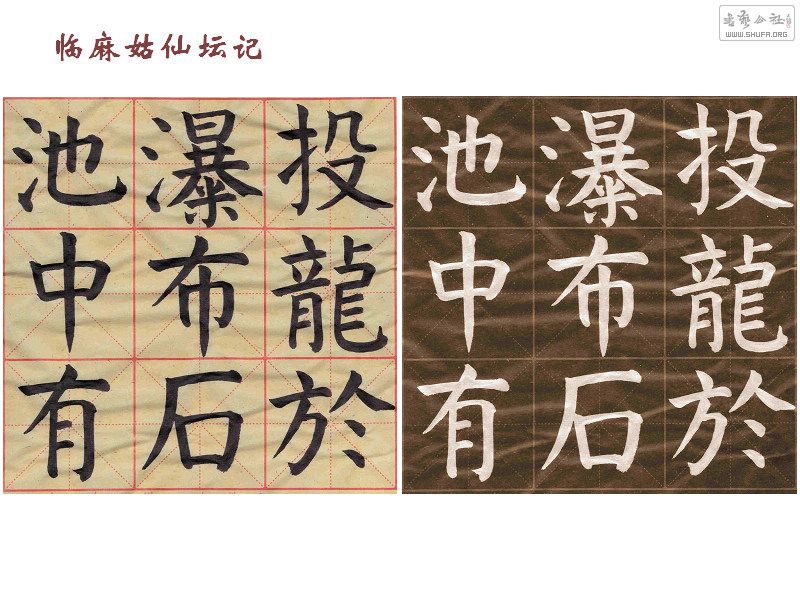 临麻姑仙坛记
書藝公社
WWW.SHUFA.ORG
投龍於
瀑布石
池中有
投龍於
瀑布石
池中有